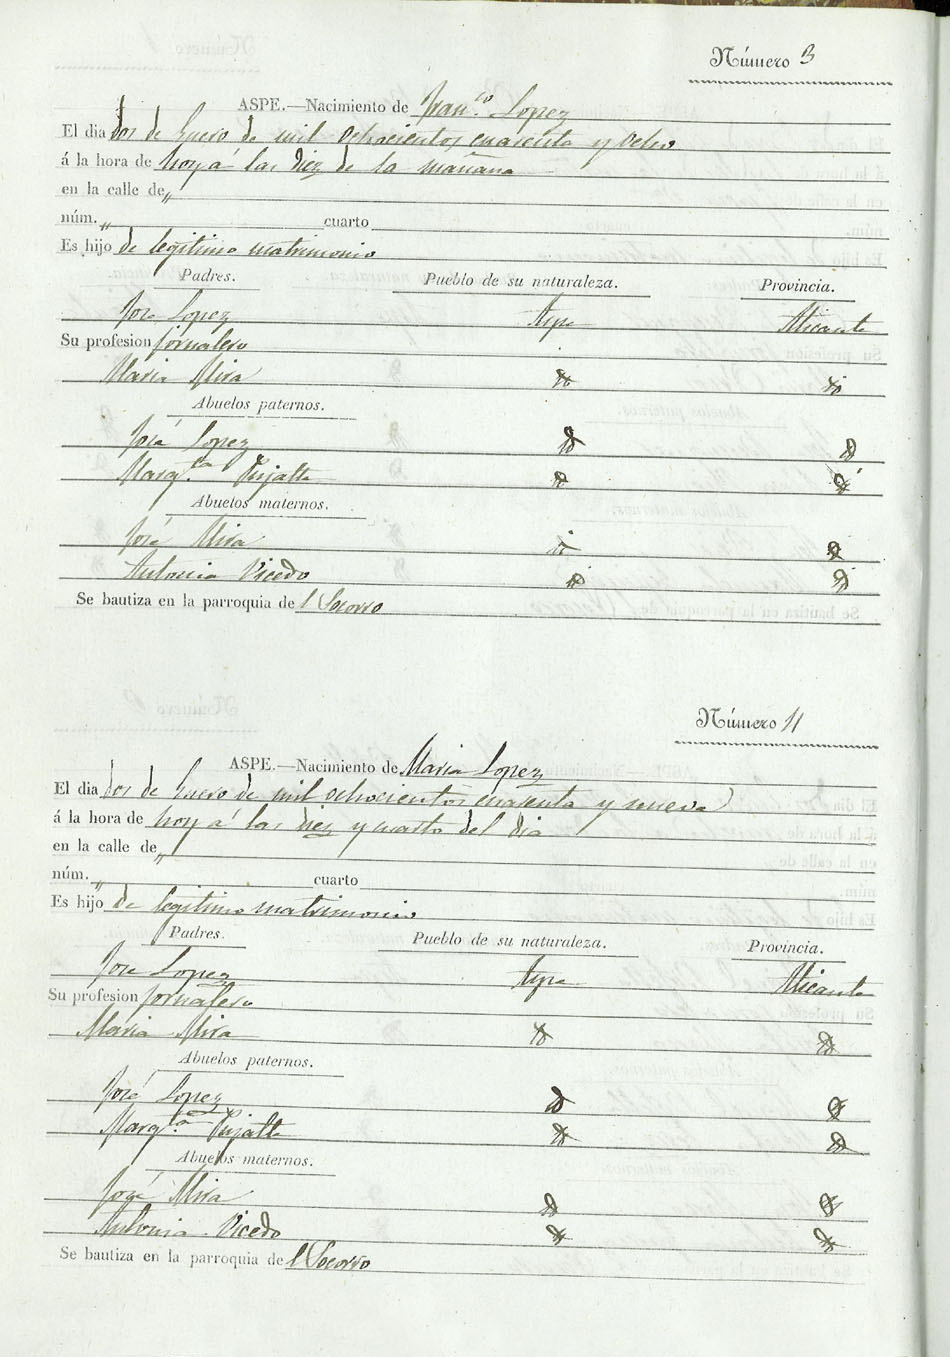 Número 3
ASPE.—Nacimiento de Fran.co Lopez
El dia dos de Enero de mil ochocientos cuarenta y ocho
á la hora de hoy a las diez de la mañana
en la calle de „
núm. „ cuarto
Es hijo de legitimo matrimonio
Padres. Pueblo de su naturaleza. Provincia.
José Lopez Aspe Alicante
Su profesion jornalero
Maria Mira
Abuelos paternos.
José Lopez
Marg.ta Pujalte
Abuelos maternos.
José Mira
Antonia Vicedo
Se bautiza en la parroquia de l Socorro
Número 4
ASPE.—Nacimiento de Maria Lopez
El dia dos de Enero de mil ochocientos cuarenta y nueve
á la hora de hoy a las diez y cuarto del dia
en la calle de „
núm. „ cuarto
Es hijo de legitimo matrimonio
Padres. Pueblo de su naturaleza. Provincia.
José Lopez Aspe Alicante
Su profesion jornalero
Maria Mira
Abuelos paternos.
José Lopez
Marg.ta Pujalte
Abuelos maternos.
José Mira
Antonia Vicedo
Se bautiza en la parroquia de l Socorro